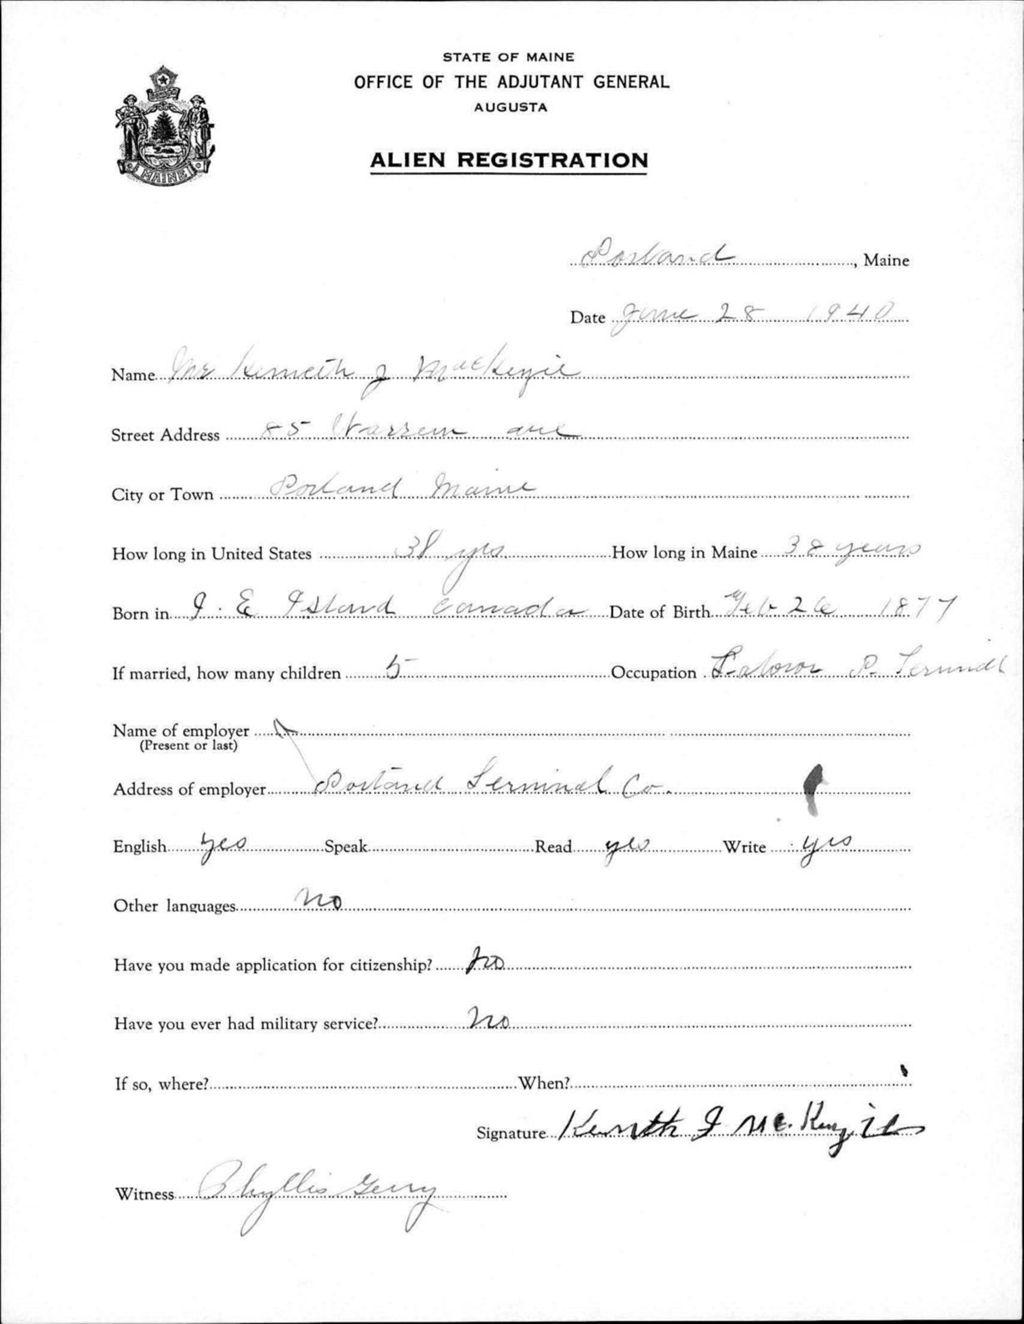 STATE OF MAINE
OFFICE OF THE ADJUTANT GENERAL
AUGUSTA
MAINE
ALIEN REGISTRATION
Portland, Maine
Date June 28 1940
Name Mr Kenneth J MacKenzie
Street Address 85 Warren ave
City or Town Portland Maine
How long in United States 38 yrs. How long in Maine 38 years
Born in P. E Island Canada Date of Birth Feb 26 1877
If married, how many children 5 Occupation Labor P. Terminal
Name of employer
(Present or last)
Address of employer Portland Terminal Co.
English yes Speak Read yes Write yes
Other languages No
Have you made application for citizenship? No
Have you ever had military service? No
If so, where? When?
Signature Kenneth J McKenzie
Witness Phyllis Gerry